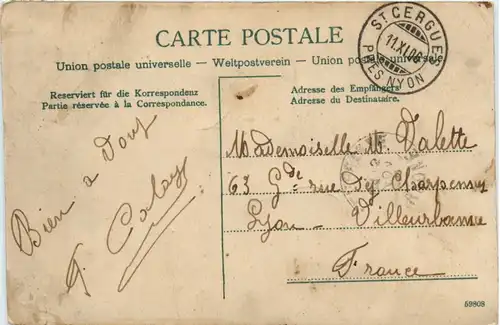 CARTE POSTALE
Union postale universelle — Weltpostverein — Union postale universelle
Reserviert für die Korrespondenz
Partie réservée à la Correspondance.
Adresse des Empfängers
Adresse du Destinataire.
ST CERGUES
11.XI.06
PRÈS NYON
Bien a Vous
Mademoiselle M. Valette
63 Gde rue des Charpennes
Lyon - Villeurbanne
France
59808